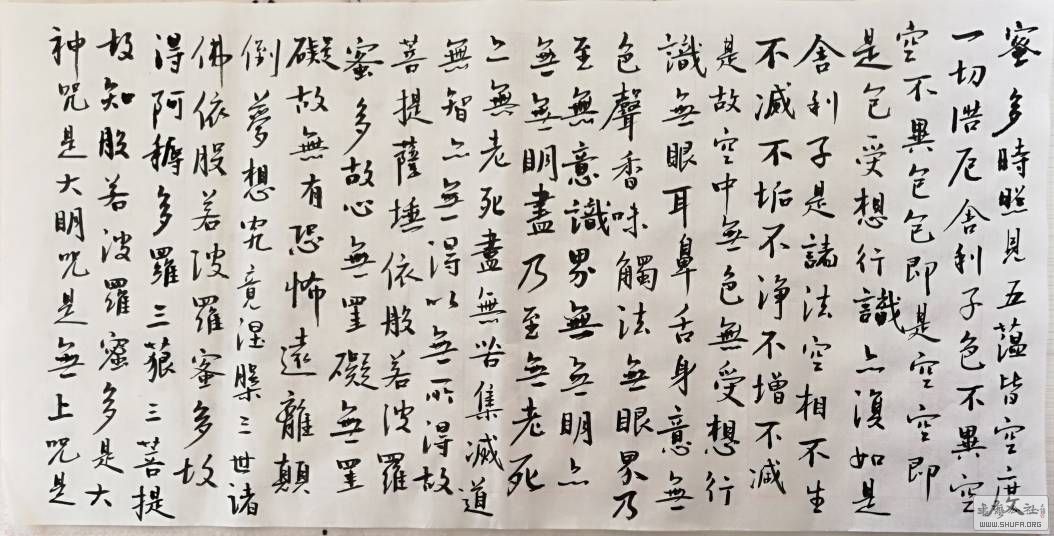 蜜多時照見五蕴皆空度
一切厄舍利子色不異空
空不異色色即是空空即
是色受想行識亦復如是
舍利子是諸法空相不生
不滅不垢不淨不增不減
是故空中無色無受想行
識無眼耳鼻舌身意無
色聲香味觸法無眼界乃
至無意識界無無明亦
無無明盡乃至無老死
亦無老死盡無苦集滅道
無智亦無得以無所得故
菩提薩埵依般若波羅
蜜多故心無罣礙無罣
礙故無有恐怖遠離顛
倒夢想究竟涅槃三世諸
佛依般若波羅蜜多故
得阿耨多羅三藐三菩提
故知般若波羅蜜多是大
神咒是大明咒是無上咒是
WWW.SHUFA.ORG